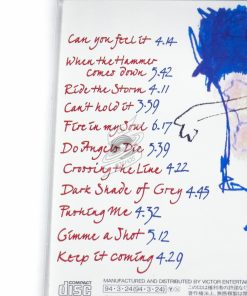 Can you feel it 4.14
When the Hammer
comes down 5.42
Ride the Storm 4.11
Can't hold it 3.59
Fire in my Soul 6.17
Do Angels Die 5.39
Crossing the Line 4.22
Dark Shade of Grey 4.45
Pushing Me 4.32
Gimme a Shot 5.12
Keep it coming 4.29
COMPACT
disc
94·3·24 (94·3·24)
MANUFACTURED AND DISTRIBUTED BY VICTOR ENTERT